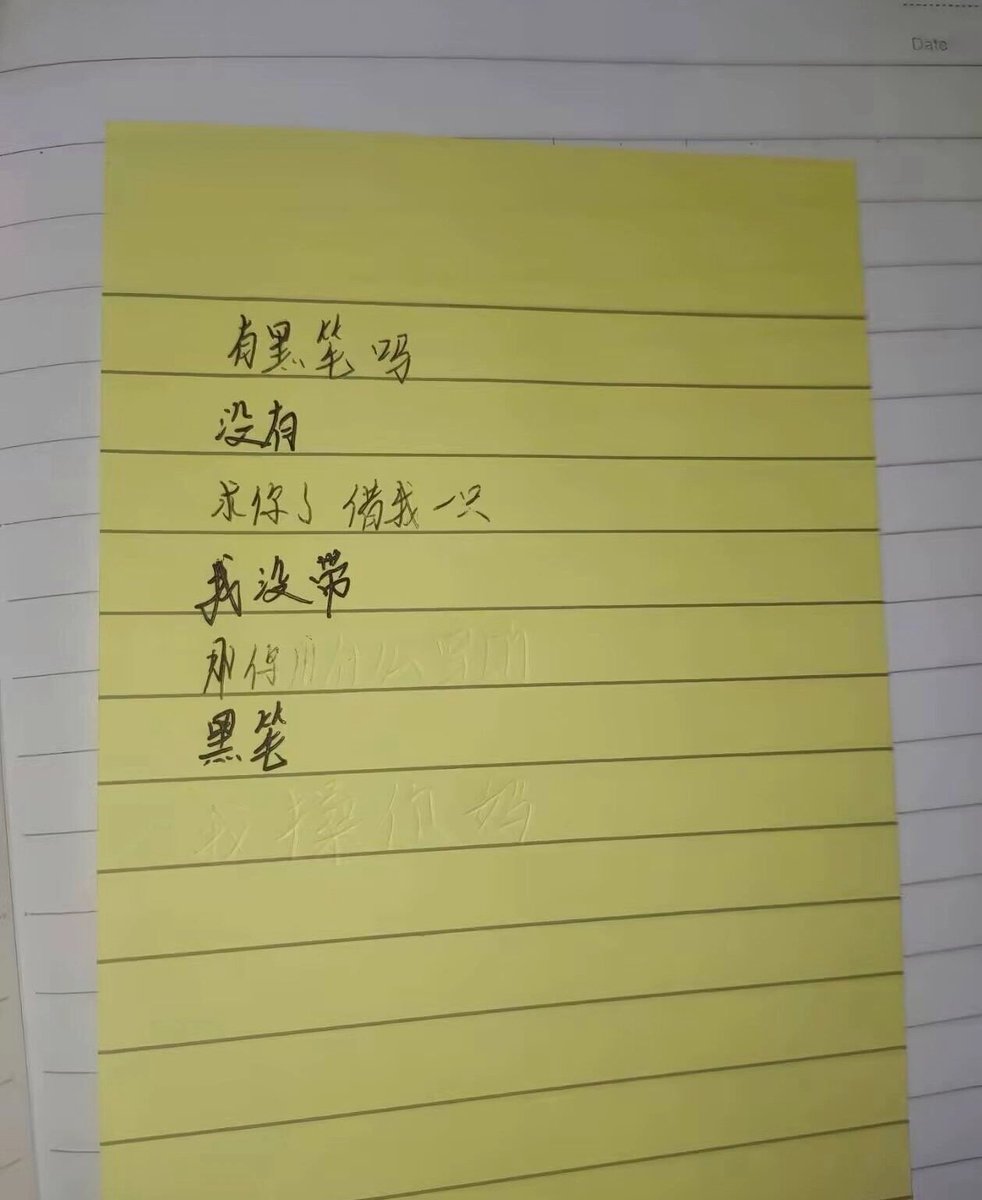 Date
有黑笔吗
没有
求你了 借我一只
我没带
那你用什么写的
黑笔
我操你妈